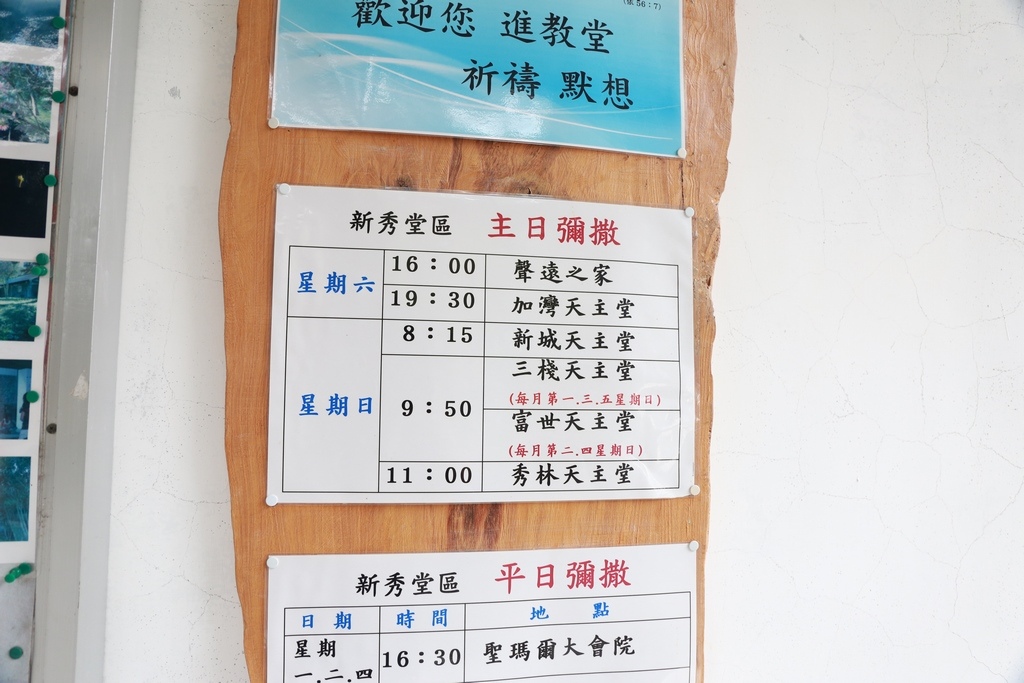 (依56：7)
歡迎您 進教堂
祈禱 默想
新秀堂區 主日彌撒
星期六 16：00 聲遠之家
19：30 加灣天主堂
星期日 8：15 新城天主堂
9：50 三棧天主堂
(每月第一.三.五星期日)
富世天主堂
(每月第二.四星期日)
11：00 秀林天主堂
新秀堂區 平日彌撒
日期 時間 地點
星期
一.二.四 16:30 聖瑪爾大會院